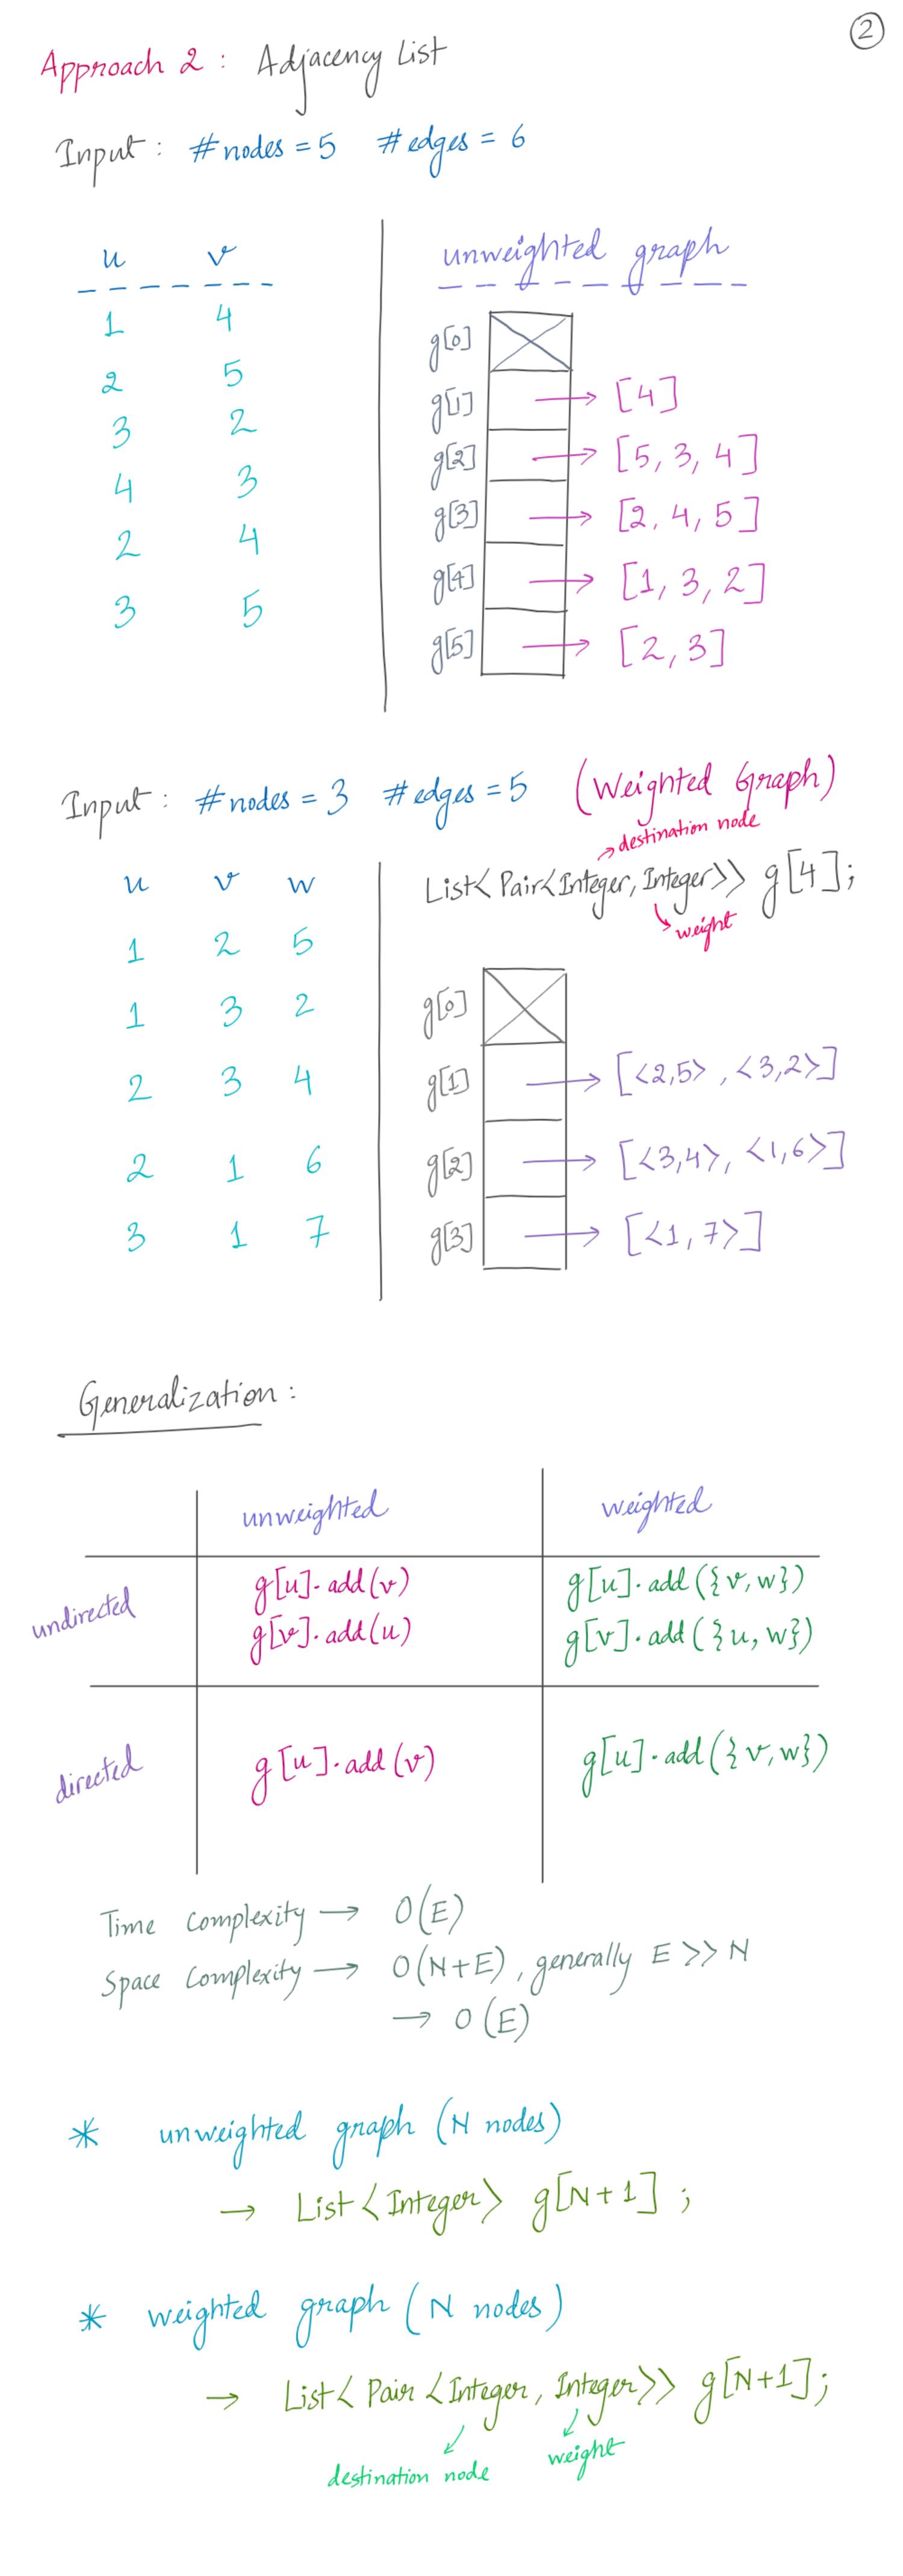 2
Approach 2 : Adjacency List
Input : #nodes = 5 #edges = 6
u v
1 4
2 5
3 2
4 3
2 4
3 5
unweighted graph
g[0]
g[1] → [4]
g[2] → [5, 3, 4]
g[3] → [2, 4, 5]
g[4] → [1, 3, 2]
g[5] → [2, 3]
Input : #nodes = 3 #edges = 5 (Weighted Graph)
u v w
1 2 5
1 3 2
2 3 4
2 1 6
3 1 7
destination node
List< Pair<Integer, Integer>> g[4];
weight
g[0]
g[1] → [<2,5> , <3,2>]
g[2] → [<3,4>, <1,6>]
g[3] → [<1, 7>]
Generalization :
unweighted weighted
undirected
g[u].add(v)
g[v].add(u)
g[u].add({v, w})
g[v].add({u, w})
directed
g[u].add(v)
g[u].add({v, w})
Time Complexity → O(E)
Space Complexity → O(N+E), generally E >> N
→ O(E)
* unweighted graph (N nodes)
→ List<Integer> g[N+1] ;
* weighted graph (N nodes)
→ List< Pair <Integer, Integer>> g[N+1];
destination node weight